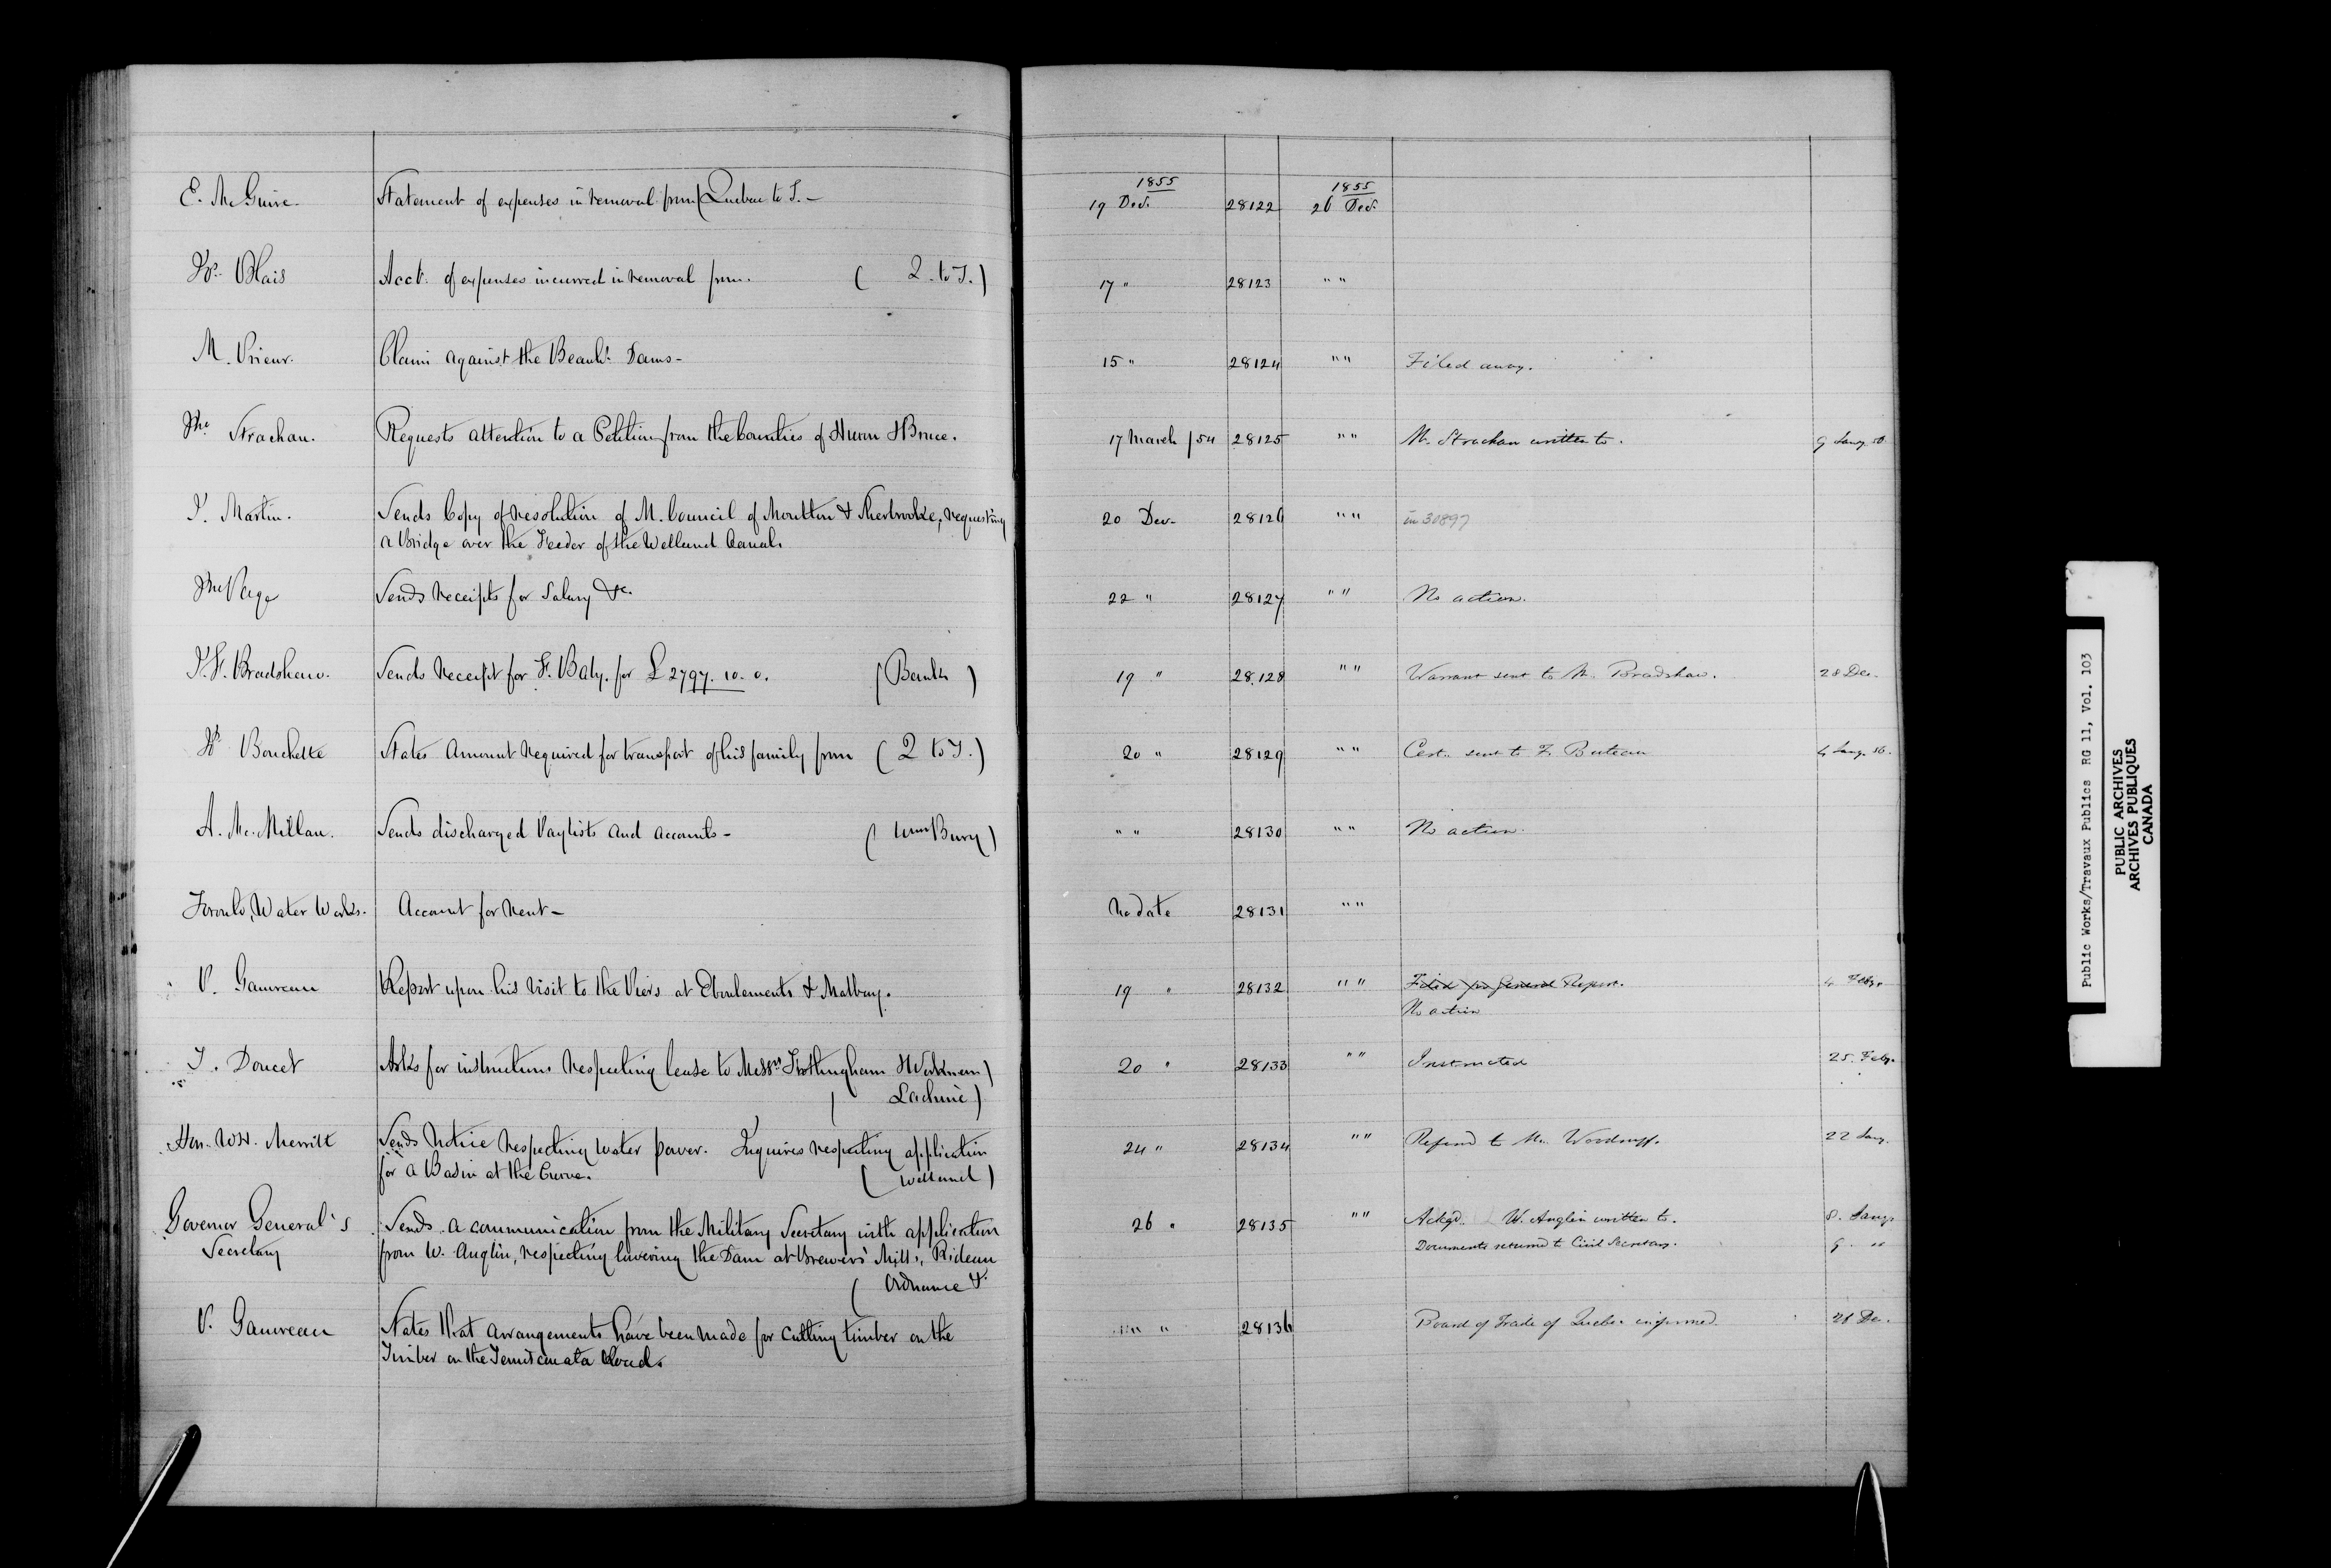 1855 1855
E. McGuire. Statement of expenses in removal from (Quebec to T. – 19 Dec. 28122 26 Dec.
Fs. Blais Acct. of expenses incurred in removal from. ( Q. to T. ) 17 " 28123 " "
M. Prieur. Claim against the Beauhs. Dams – 15 " 28124 " " Filed away.
Jno. Strachan. Requests attention to a Petition from the Counties of Huron & Bruce. 17 March /54 28125 " " Mr. Strachan written to. 9 Jany. 56.
J. Martin. Sends Copy of resolution of M. Council of Moulton & Sherbrooke, requesting 20 Dec. 28126 " " in 30897
a Bridge over the Feeder of the Welland Canal.
Jno Page Sends receipts for Salary &c. 22 " 28127 " " No action.
J. F. Bradshaw. Sends Receipt for F. Baby. for £ 2797. 10. 0. ( Bank ) 19 " 28.128 " " Warrant sent to Mr. Bradshaw. 28 Dec.
Bouchette States Amount required for transport of his family from ( Q to T. ) 20 " 28129 " " Cert. sent to F. Buteau 4 Jany. 56.
A. Mc.Millan. Sends discharged Paylists and accounts – ( Bury ) " " 28130 " " No action.
Toronto, Water Works. Account for Rent – No date 28131 " "
P. Gauvreau Report upon his visit to the Piers at Eboulements & Malbay. 19 " 28132 " " Filed for General Report. 4 Feby.
No action
T. Doucet Asks for instructions respecting lease to Messrs. Frothingham & Workman ) 20 " 28133 " " Instructed 25. Feby.
( Lachine )
Hon. W.H. Merritt Sends Notice respecting water power. Inquires respecting application 24 " 28134 " " Referred to Mr. Woodruff. 22 Jany.
for a Basin at the Curve. ( Welland )
Governor General's Sends a communication from the Military Secretary with application 26 " 28135 " " Ackgd. W. Anglin written to. 8. Jany.
Secretary from W. Anglin, respecting lowering the Dam at Brewers' Mills, Rideau Documents returned to Civil Secretary. 9. "
( Ordnance &.
P. Gauvreau States that arrangements have been made for cutting timber on the " " 28136 Board of Trade of Quebec informed. 28 Dec.
Timber on the Temiscouata Road.
Public Works/Travaux Publics RG 11, Vol. 103
PUBLIC ARCHIVES
ARCHIVES PUBLIQUES
CANADA